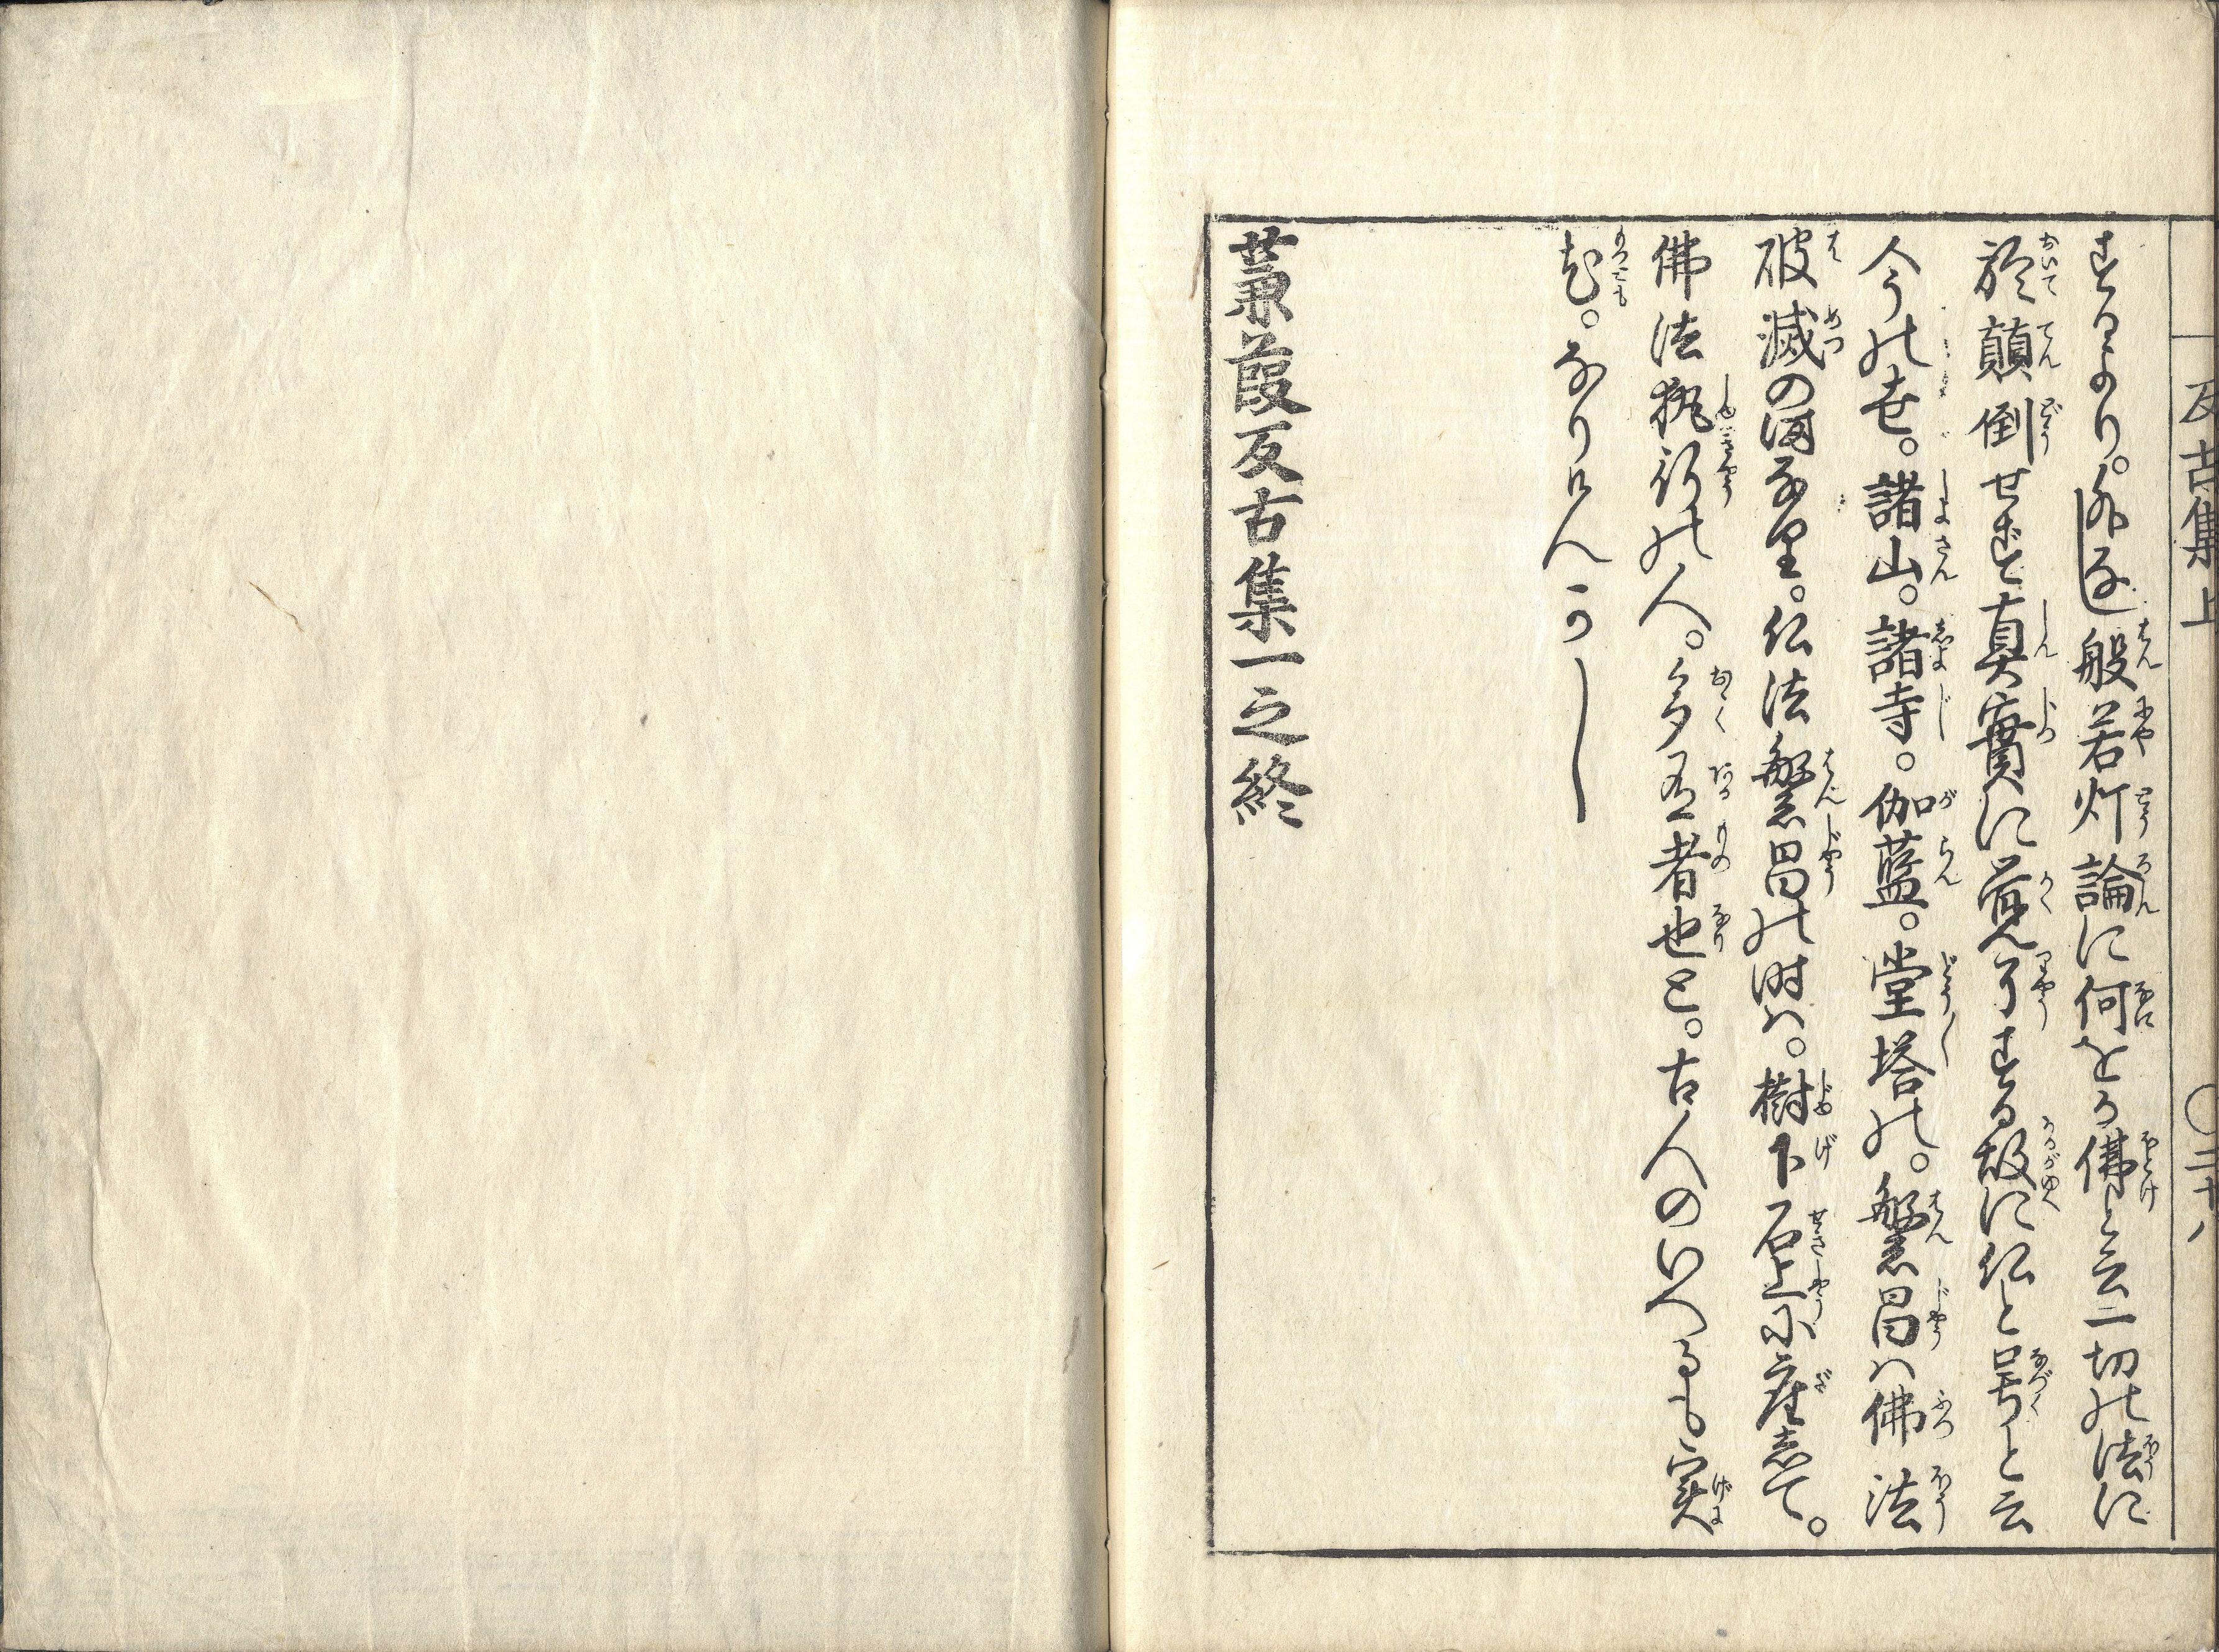 反古集 上 〇二十八
するより。外なし般若灯論に何をか佛と云一切の法に
於顛倒せず真實に覚了する故に仏と号と云
今の世。諸山。諸寺。伽藍。堂塔の。繁昌ハ佛法
破滅のなり。仏法繁昌の時ハ。樹下石上に座して。
佛法執行の人。多有者也と。古人のいへるも実
尤。なりけんかし
蒹葭反古集一之終